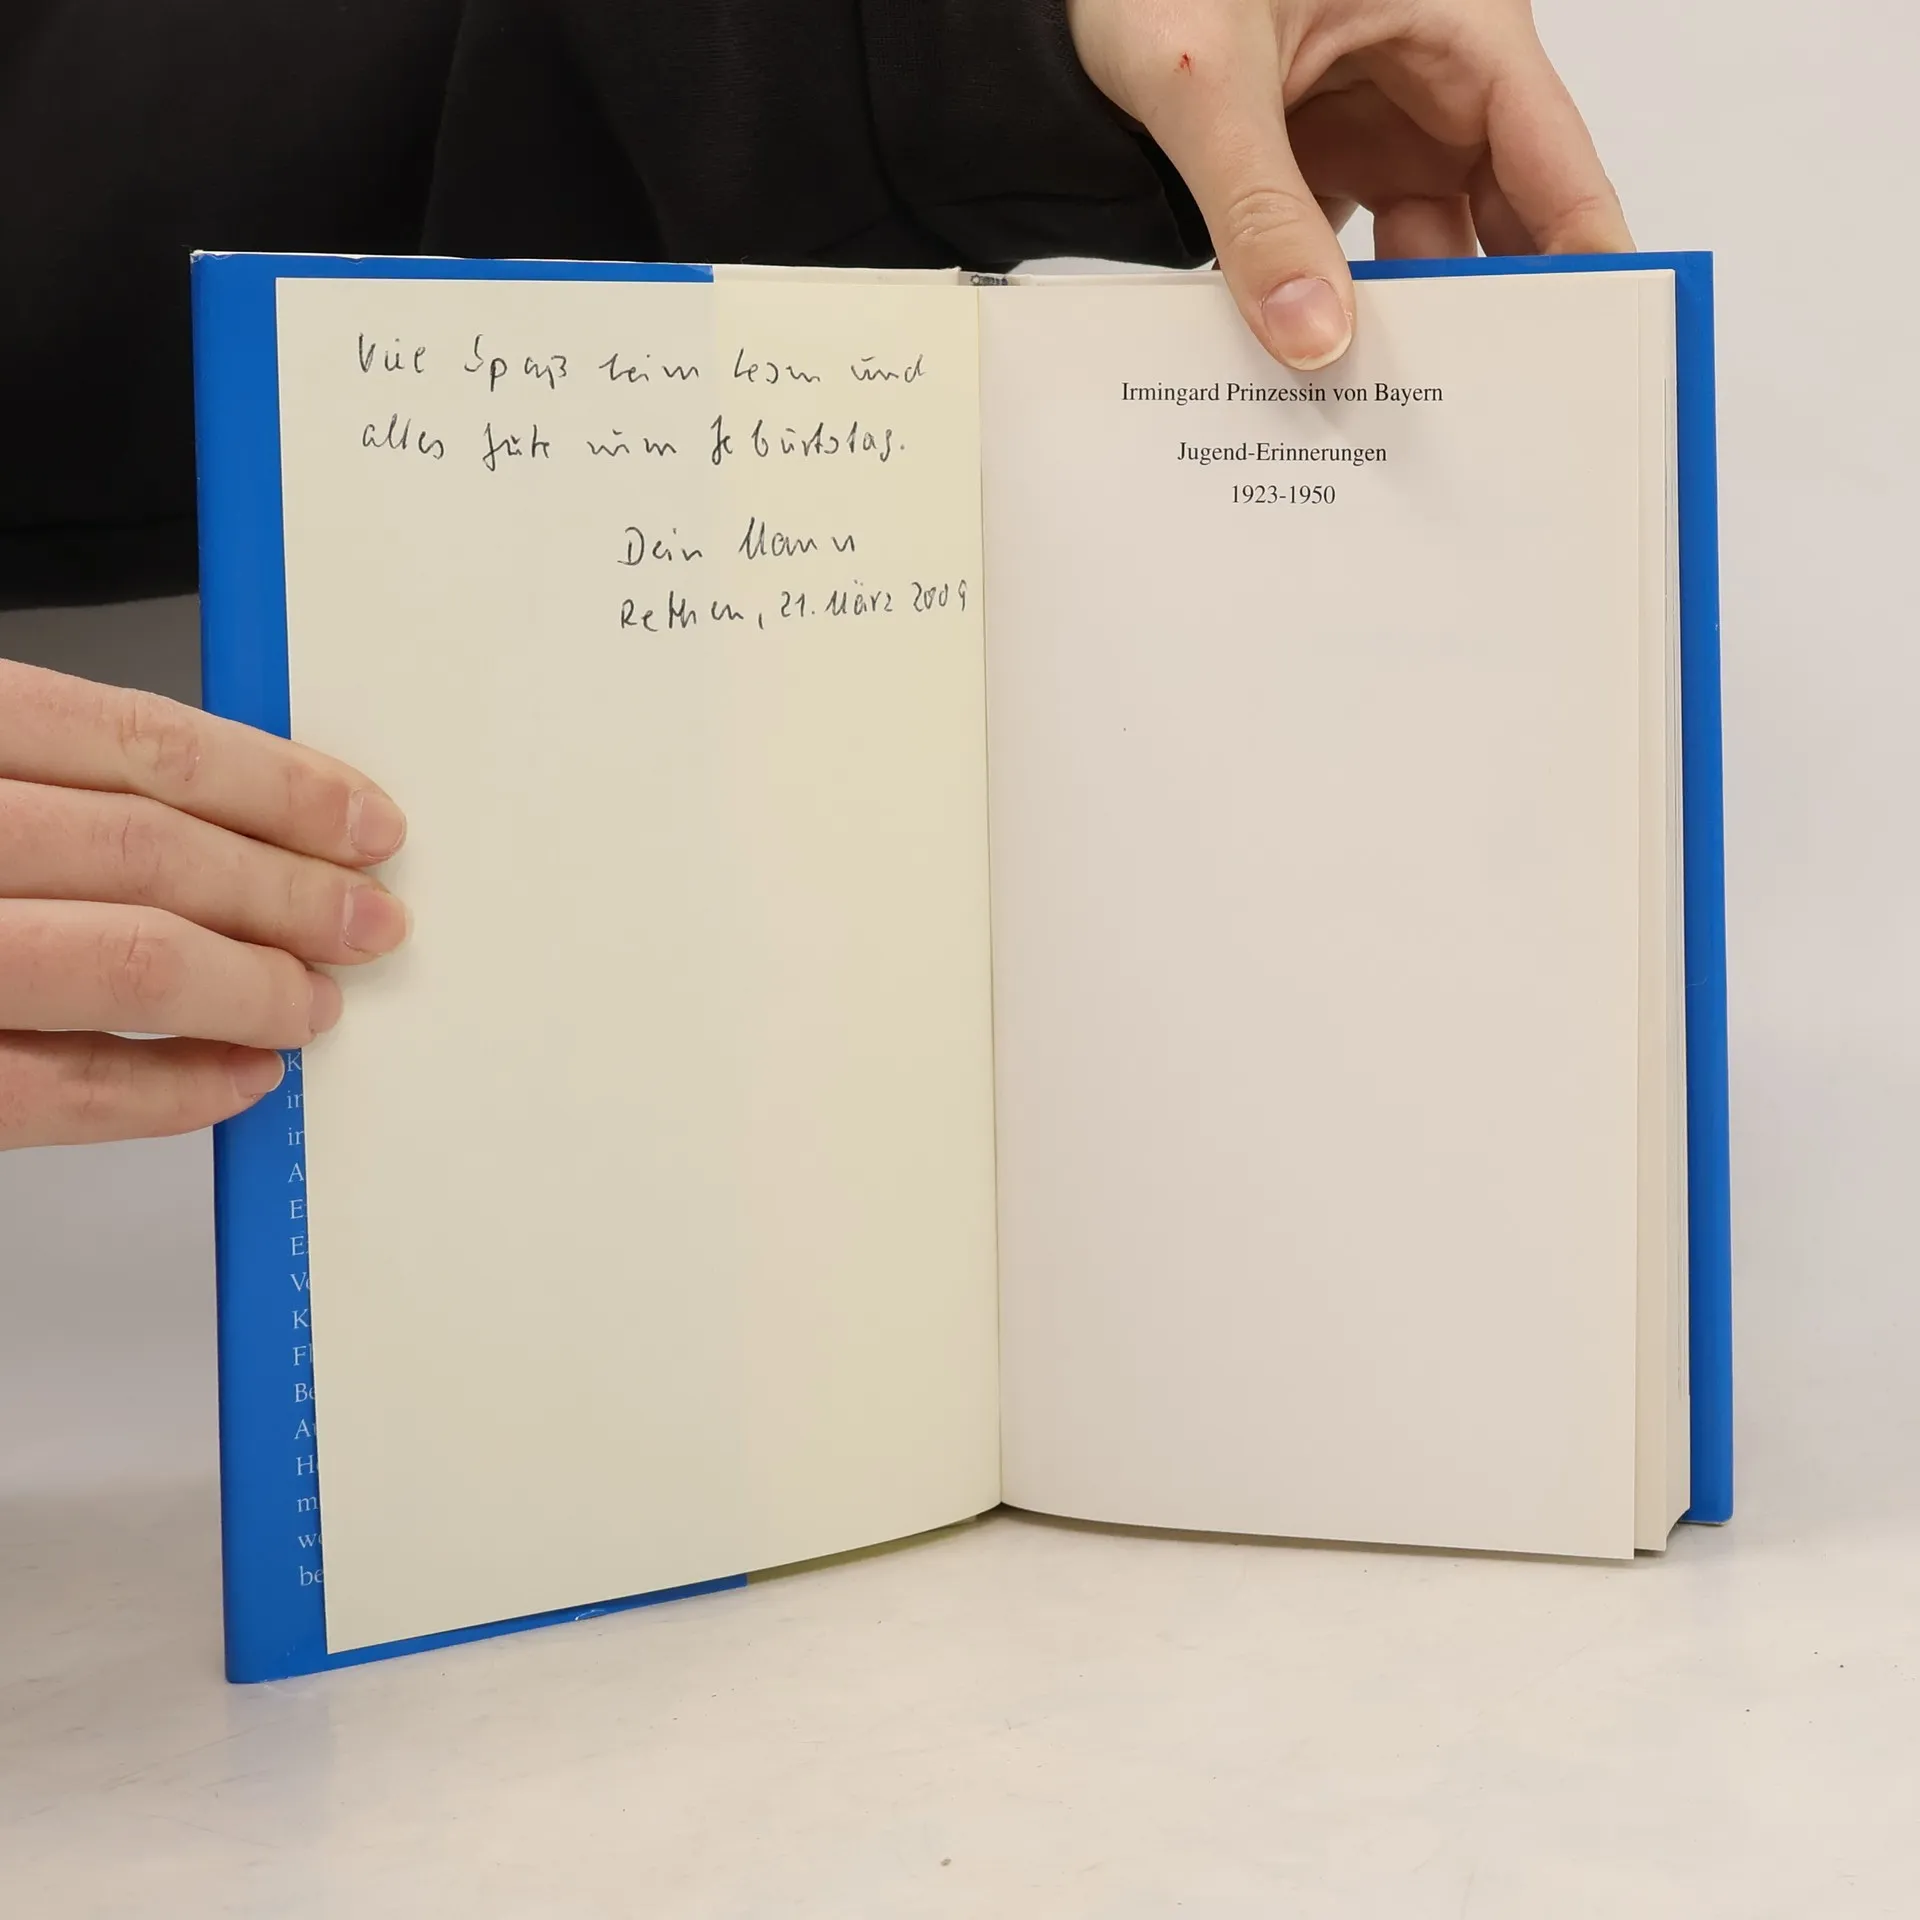 Viel Spaß beim Lesen und
alles Gute zum Geburtstag.
Dein Mann
Rethen, 21. März 2009
Irmingard Prinzessin von Bayern
Jugend-Erinnerungen
1923-1950